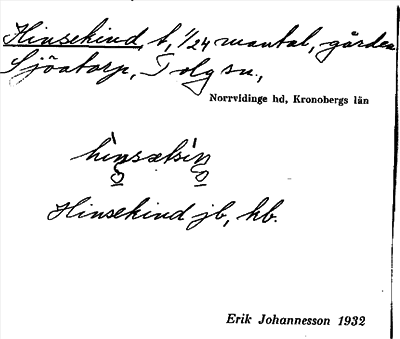 Hinsekind, t, 1/24 mantal, gården
Sjöatorp, Tolg sn.,
Norrvidinge hd, Kronobergs län
Hinsekind jb, hb.
Erik Johannesson 1932